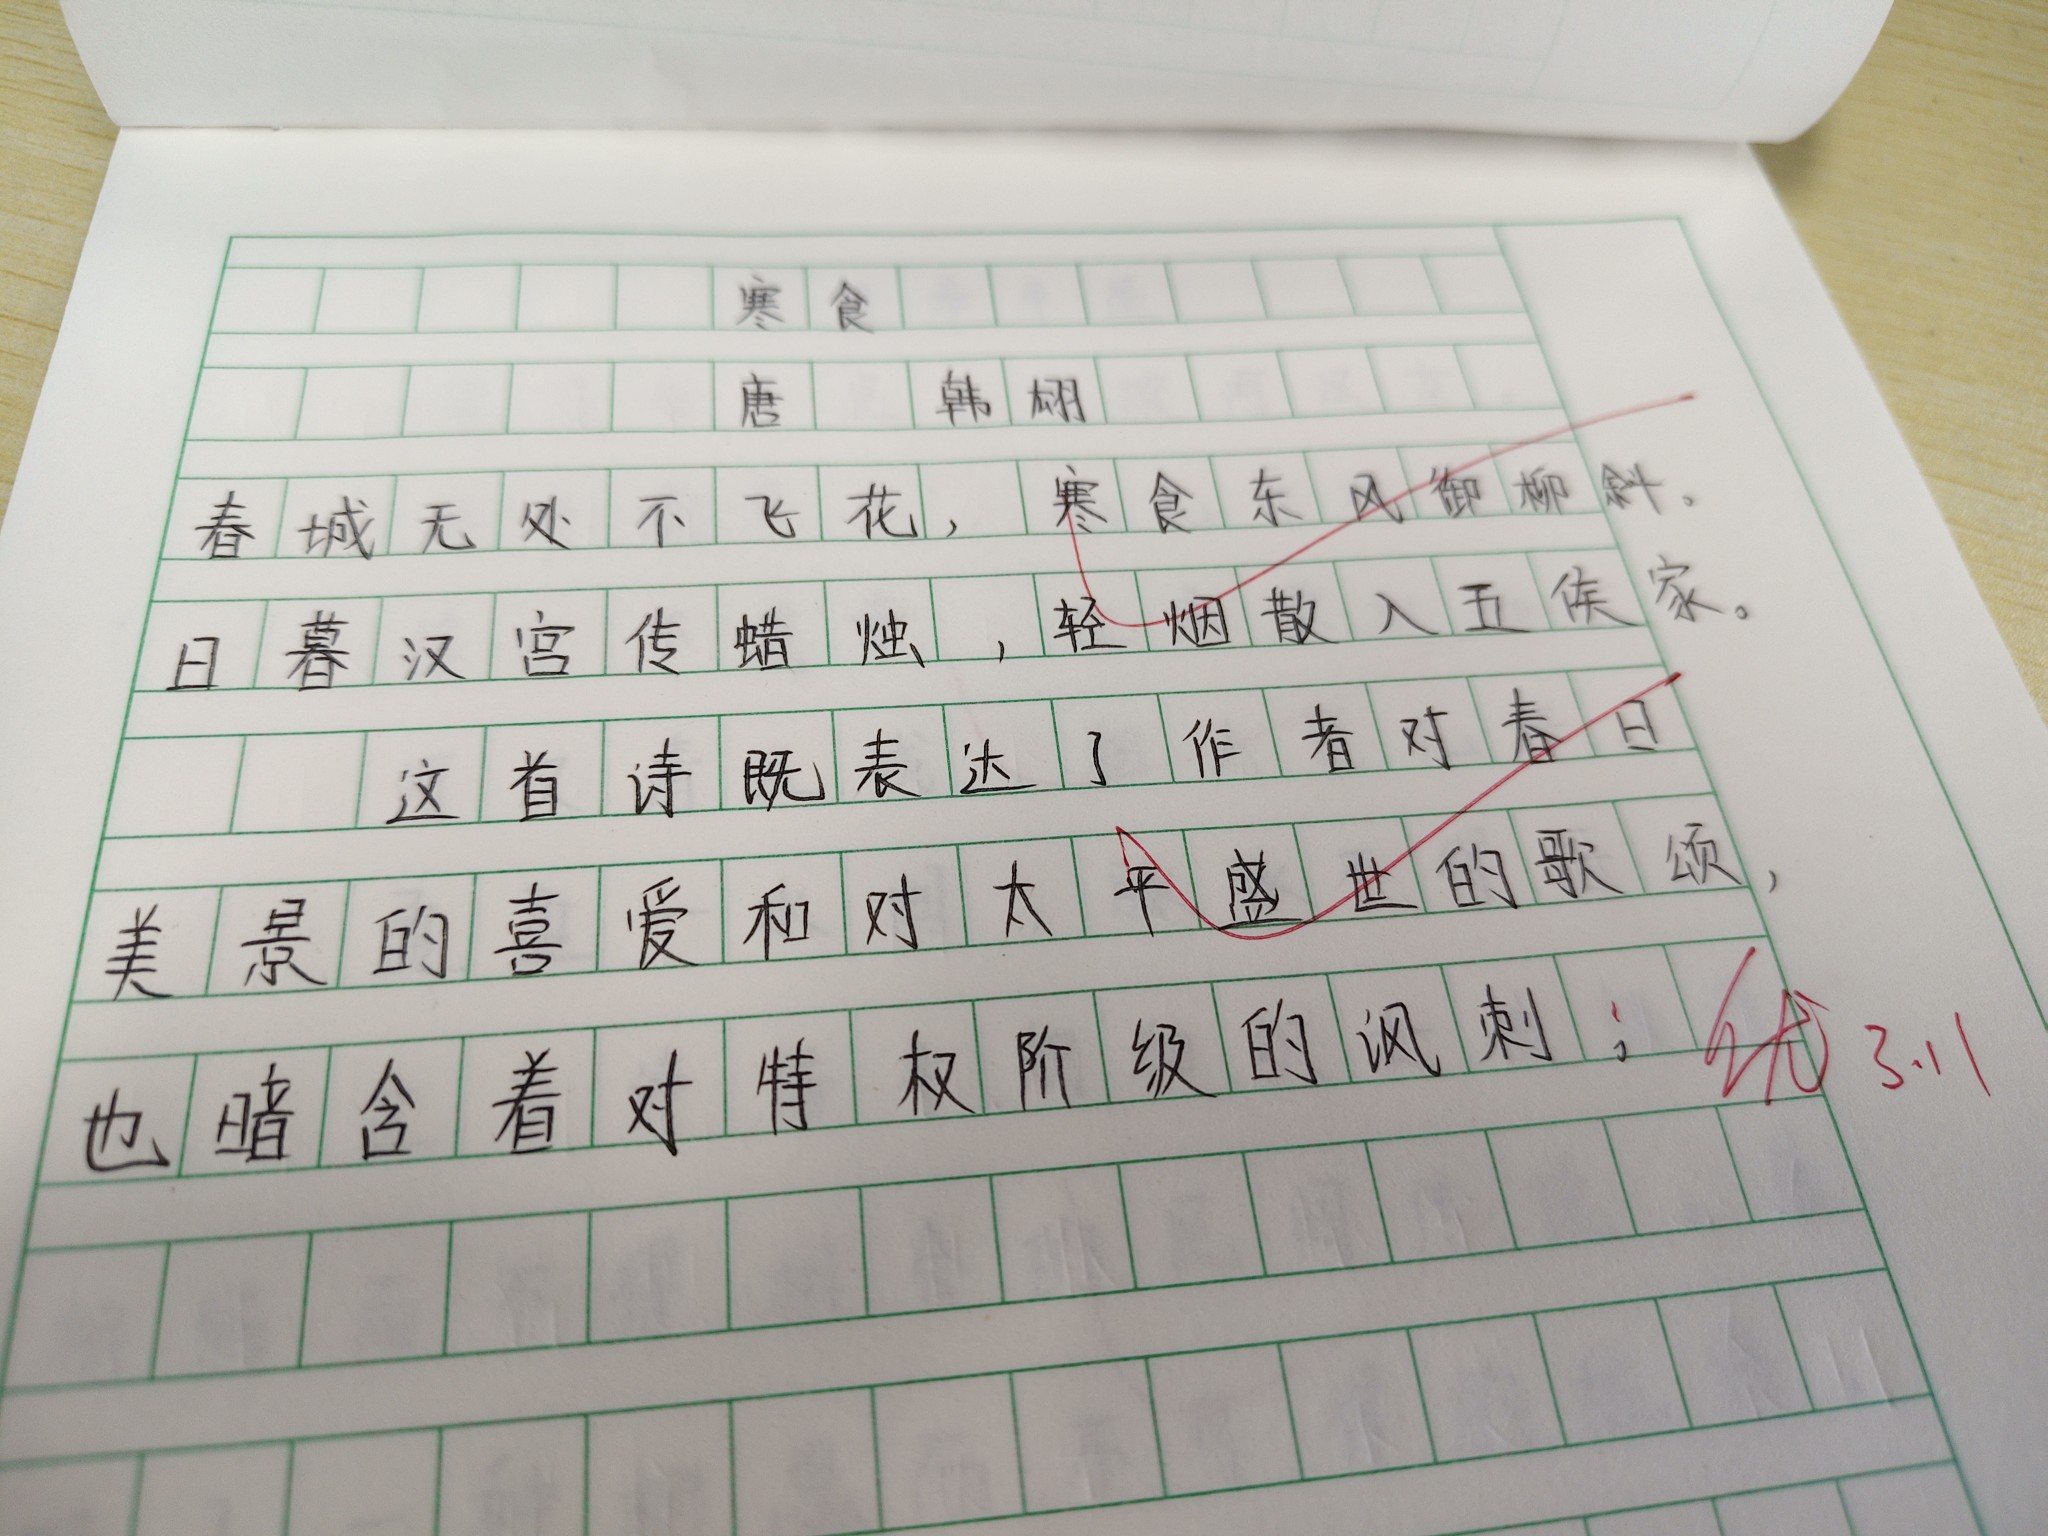 寒食
唐 韩翃
春城无处不飞花，寒食东风御柳斜。
日暮汉宫传蜡烛，轻烟散入五侯家。
这首诗既表达了作者对春日
美景的喜爱和对太平盛世的歌颂，
也暗含着对特权阶级的讽刺；
优 3.11